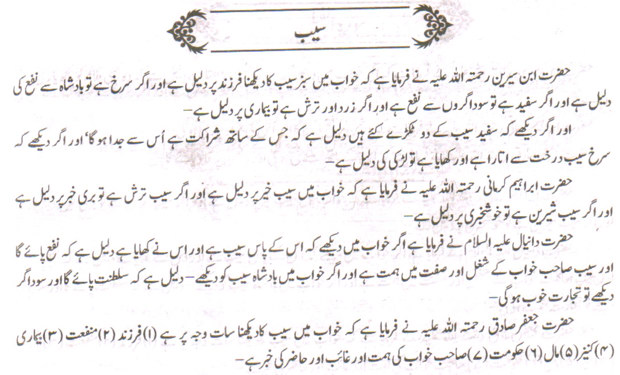 سیب
حضرت ابن سیرین رحمتہ اللہ علیہ نے فرمایا ہے کہ خواب میں سبز سیب کا دیکھنا فرزند پر دلیل ہے اور اگر سرخ ہے تو بادشاہ سے نفع کی
دلیل ہے اور اگر سفید ہے تو سوداگروں سے نفع ہے اور اگر زرد اور ترش ہے تو بیماری پر دلیل ہے۔
اور اگر دیکھے کہ سفید سیب کے دو ٹکڑے کئے ہیں دلیل ہے کہ جس کے ساتھ شراکت ہے اُس سے جدا ہو گا' اور اگر دیکھے کہ
سرخ سیب درخت سے اتارا ہے اور کھایا ہے تو لڑکی کی دلیل ہے۔
حضرت ابراہیم کرمانی رحمتہ اللہ علیہ نے فرمایا ہے کہ خواب میں سیب خیر پر دلیل ہے اور اگر سیب ترش ہے تو بری خبر پر دلیل ہے
اور اگر سیب شیریں ہے تو خوشخبری پر دلیل ہے۔
حضرت دانیال علیہ السلام نے فرمایا ہے اگر خواب میں دیکھے کہ اس کے پاس سیب ہے اور اس نے کھایا ہے دلیل ہے کہ نفع پائے گا
اور سیب صاحب خواب کے شغل اور صفت میں ہمت ہے اور اگر خواب میں بادشاہ سیب کو دیکھے۔ دلیل ہے کہ سلطنت پائے گا اور سوداگر
دیکھے تو تجارت خوب ہو گی۔
حضرت جعفر صادق رحمتہ اللہ علیہ نے فرمایا ہے کہ خواب میں سیب کا دیکھنا سات وجہ پر ہے (۱) فرزند (۲) منفعت (۳) بیماری
(۴) کنیز (۵) مال (۶) حکومت (۷) صاحب خواب کی ہمت اور غائب اور حاضر کی خبر ہے۔